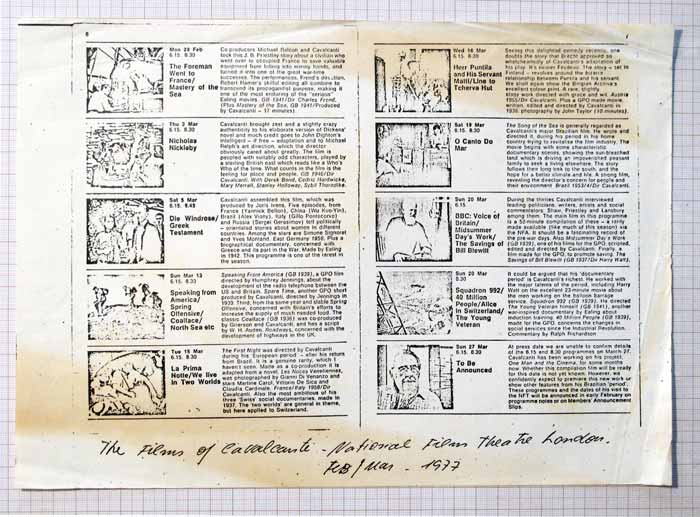 6
Mon 28 Feb
6.15 8.30
The Foreman
Went to
France/
Mastery of the
Sea
Co-producers Michael Balcon and Cavalcanti
took this J. B. Priestley story about a civilian who
went over to occupied France to save valuable
equipment from falling into wrong hands, and
turned it into one of the great war-time
successes. The performances, Frend's direction,
Robert Hamer's skilful editing all combine to
transcend its propagandist purpose, making it
one of the most enduring of the "serious"
Ealing movies. GB 1941/Dir Charles Frend.
(Plus Mastery of the Sea, GB 1941/Produced
by Cavalcanti – 17 minutes).
Thu 3 Mar
6.15 8.30
Nicholas
Nickleby
Cavalcanti brought zest and a slightly crazy
authenticity to his elaborate version of Dickens'
novel and much credit goes to John Dighton's
intelligent – if free – adaptation and to Michael
Relph's art direction, which the director
obviously cared about greatly. The film is
peopled with suitably odd characters, played by
a sterling British cast which reads like a Who's
Who of the time. What counts in the film is the
feeling for place and people. GB 1946/Dir
Cavalcanti. With Derek Bond, Cedric Hardwicke,
Mary Merrall, Stanley Holloway, Sybil Thorndike.
Sat 5 Mar
6.15 8.45
Die Windrose/
Greek
Testament
Cavalcanti assembled this film, which was
produced by Joris Ivens. Five episodes, from
France (Yannick Bellon), China (Wu Kuo-Yin),
Brazil (Alex Viany), Italy (Gillo Pontecorvo)
and Russia (Sergei Gerasimov) tell politically
-orientated stories about women in different
countries. Among the stars are Simone Signoret
and Yves Montand. East Germany 1956. Plus a
biographical documentary, concerned with
Greece and its part in the War. Made by Ealing
in 1942. This programme is one of the rarest in
the season.
Sun Mar 13
6.15 8.30
Speaking from
America/
Spring
Offensive/
Coalface/
North Sea etc
Speaking From America (GB 1939), a GPO film
directed by Humphrey Jennings, about the
development of the radio telephone between the
US and Britain. Spare Time, another GPO short
produced by Cavalcanti, directed by Jennings in
1939. Third, from the same year and stable Spring
Offensive, concerned with Britain's efforts to
increase the supply of much needed food. The
classic Coalface (GB 1936) was co-produced
by Grierson and Cavalcanti, and has a script
by W. H. Auden. Roadways, concerned with the
development of highways in the UK.
Tue 15 Mar
6.15 8.30
La Prima
Notte/We live
in Two Worlds
The First Night was directed by Cavalcanti
during his 'European period' – after his return
from Brazil. It is a genuine rarity, which I
haven't seen. Made as a co-production it is
adapted from a novel, Les Noces Venetiennes,
is photographed by Gianni Di Venanzo and
stars Martine Carol, Vittorio De Sica and
Claudia Cardinale. France/Italy 1958/Dir
Cavalcanti. Also the most ambitious of his
three 'Swiss' social documentaries, made in
1937. The 'two worlds' are general in theme,
but here applied to Switzerland.
Wed 16 Mar
6.15 8.30
Herr Puntila
and His Servant
Matti/Line to
Tcherva Hut
Seeing this delightful comedy recently, one
doubts the story that Brecht approved so
wholeheartedly of Cavalcanti's adaptation of
his play. It's never Freudian. The story – set in
Finland – revolves around the bizarre
relationship between Puntila and his servant.
We shall again show the Belgian Archive's
excellent colour print. A rare, slightly
stagy work directed with grace and wit. Austria
1955/Dir Cavalcanti. Plus a GPO made movie,
written, edited and directed by Cavalcanti in
1936, photography by John Taylor (10 minutes).
Sat 19 Mar
6.15 8.30
O Canto Do
Mar
The Song of the Sea is generally regarded as
Cavalcanti's major Brazilian film. He wrote and
directed it, during his period in his home
country trying to revitalise the film industry. The
movie begins with some characteristic
documentary scenes, showing the sun-bleached
land which is driving an impoverished peasant
family to seek a living elsewhere. The story
follows their long trek to the south, and the
hope for a better climate and life. A strong film,
revealing the director's concern for people and
their environment. Brazil 1953/4/Dir Cavalcanti.
Sun 20 Mar
6.15
BBC: Voice of
Britain/
Midsummer
Day's Work/
The Savings of
Bill Blewitt
During the thirties Cavalcanti interviewed
leading politicians, writers, artists and social
commentators; Shaw, Priestley and Lansbury
among them. The main film in this programme
is a 53-minute compilation of these – a rarely
made available (like much of this season) via
the NFA. It should be a fascinating record of
the pre-war days. Also Midsummer Day's Work
(GB 1939), one of his films for the GPO, scripted,
edited and directed by Cavalcanti. Finally, a
film made for the GPO, to promote saving. The
Savings of Bill Blewitt (GB 1937/Dir Harry Watt).
Sun 20 Mar
8.30
Squadron 992/
40 Million
People/Alice
in Switzerland/
The Young
Veteran
It could be argued that his 'documentary
period' is Cavalcanti's richest. He worked with
the major talents of the period, including Harry
Watt on the excellent 23-minute movie about
the men working on the balloon barrage
service. Squadron 992 (GB 1939). He directed
The Young Veteran himself (GB 1941), another
war-inspired documentary by Ealing about
induction training. 40 Million People (GB 1939),
made for the GPO, concerns the changes in
economics since the Industrial Revolution.
Commentary by Ralph Richardson.
Sun 27 Mar
6.15 8.30
To Be
Announced
At press date we are unable to confirm details
of the 6.15 and 8.30 programmes on March 27.
Cavalcanti has been working on his project,
One Man and the Cinema, for some months
now. Whether this compilation film will be ready
for this date is not yet known. However, we
confidently expect to preview this new work or
show other features from his Brazilian period.
These programmes and the dates of his visit to
the NFT will be announced in early February on
programme notes or on Members' Announcement
Slips.
The Films of Cavalcanti - National Film Theatre London.
Feb/Mar - 1977